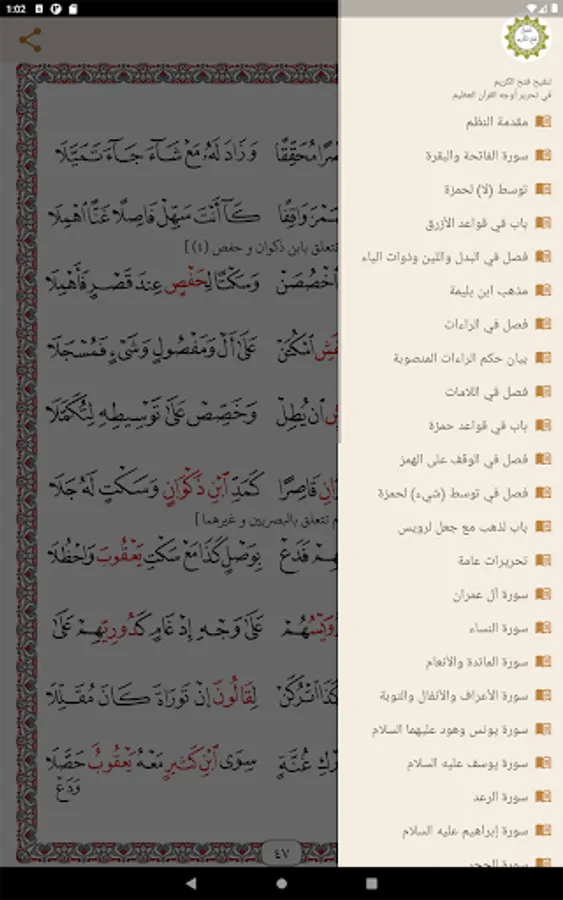 1:02
تنقيح فتح الكريم
في تحرير أوجه القرآن العظيم
مقدمة النظم
سورة الفاتحة والبقرة
توسط (لا) لحمزة
باب في قواعد الأزرق
فصل في البدل واللين وذوات الياء
مذهب ابن بليمة
فصل في الراءات
بيان حكم الراءات المنصوبة
فصل في اللامات
باب في قواعد حمزة
فصل في الوقف على الهمز
فصل في توسط (شيء) لحمزة
باب لذهب مع جعل لرويس
تحريرات عامة
سورة آل عمران
سورة النساء
سورة المائدة والأنعام
سورة الأعراف والأنفال والتوبة
سورة يونس وهود عليهما السلام
سورة يوسف عليه السلام
سورة الرعد
سورة إبراهيم عليه السلام
سورة الحجر
وَزَادَ لَهُ مَعْ شَاءَ جَاءَ تَمَيَّلَا
كَآأَنتَ سَهِّلْ فَاصِلًا عَنَّا اهْمِلَا
تتعلق بابن ذكوان و حفص (٤) ]
اخْصُصَنْ وَسَكْتًا لِحَفْصٍ عِندَ قَصْرٍ فَأَهْمِلَا
اسْكُنْ عَلَى أَلْ وَمَفْصُولٍ وَشَيْءٍ فَمُسْجَلَا
ان يُطِلْ وَخَصِّصْ عَلَى تَوْسِيطِهِ لِتُكَمِّلَا
قَاصِرًا كَمَدِّ ابْنِ ذَكْوَانٍ وَسَكْتٍ لَهُ جَلَا
م تتعلق بالبصريين و غيرهما ]
فَدَعْ بِوَصْلٍ كَذَا مَعْ سَكْتِ يَعْقُوبَ وَاحْظُلَا
عَلَى وَجْهِ إِدْغَامٍ كَدُورِيِّهِمْ عَلَى
لِقَالُونَ إِنْ تَوْرَاةَ كَانَ مُقَلِّلَا
غُنَّةٍ سِوَى ابْنِ كَثِيرٍ مَعْهُ يَعْقُوبُ حَصَّلَا
وَدَعْ
٤٧